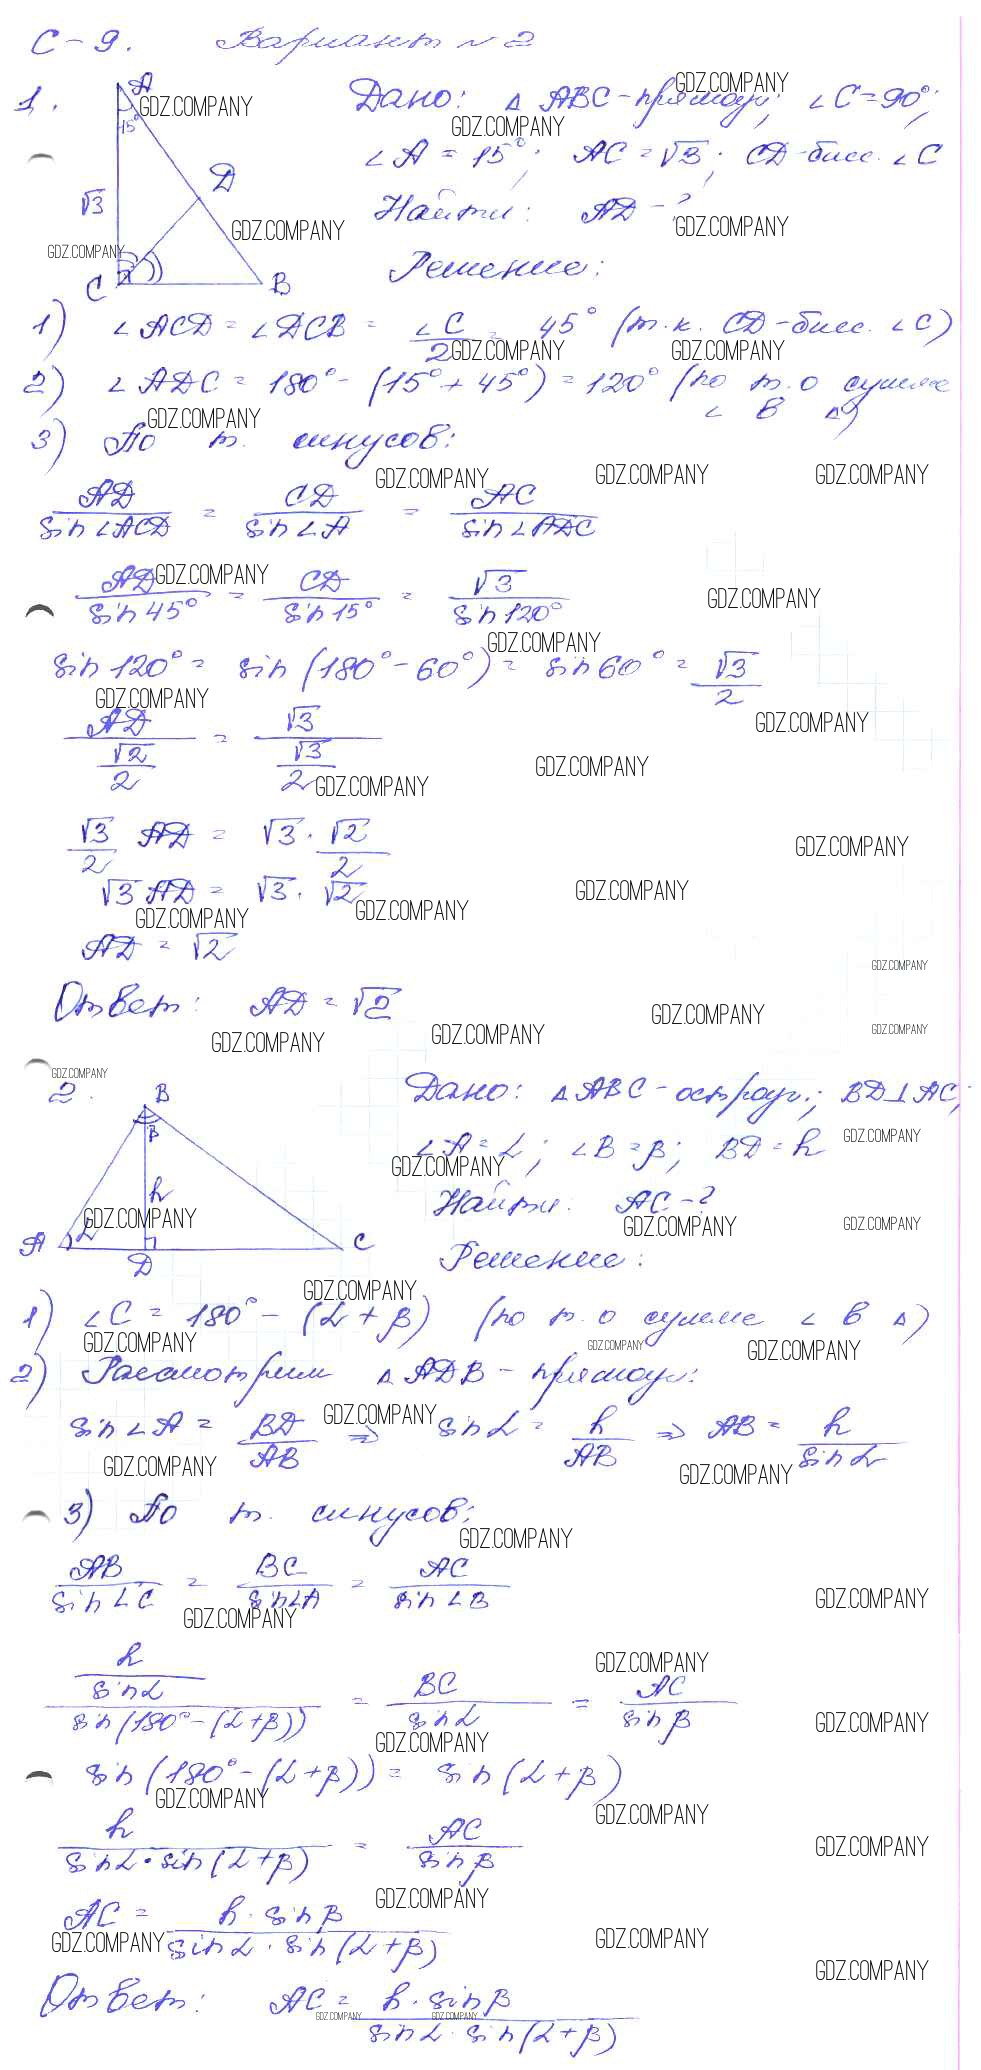 С-9. Вариант №2
1.
A
15°
√3
D
C
B
Дано: △ ABC - прямоуг.; ∠C = 90°;
∠A = 15°; AC = √3; CD - бисс. ∠C
Найти: AD - ?
Решение:
1) ∠ACD = ∠DCB = ∠C/2 = 45° (т.к. CD - бисс. ∠C)
2) ∠ADC = 180° - (15° + 45°) = 120° (по т. о сумме
∠ в △)
3) По т. синусов:
AD/sin∠ACD = CD/sin∠A = AC/sin∠ADC
AD/sin45° = CD/sin15° = √3/sin120°
sin120° = sin(180° - 60°) = sin60° = √3/2
AD/(√2/2) = √3/(√3/2)
√3/2 AD = √3 · √2/2
√3 AD = √3 · √2
AD = √2
Ответ: AD = √2
2.
B
β
h
A
α
D
C
Дано: △ABC - остроуг.; BD⊥AC;
∠A = α; ∠B = β; BD = h
Найти: AC - ?
Решение:
1) ∠C = 180° - (α + β) (по т. о сумме ∠ в △)
2) Рассмотрим △ADB - прямоуг.:
sin∠A = BD/AB ⇒ sinα = h/AB ⇒ AB = h/sinα
3) По т. синусов:
AB/sin∠C = BC/sin∠A = AC/sin∠B
(h/sinα)/sin(180° - (α + β)) = BC/sinα = AC/sinβ
sin(180° - (α + β)) = sin(α + β)
h/(sinα · sin(α + β)) = AC/sinβ
AC = h · sinβ/(sinα · sin(α + β))
Ответ: AC = h · sinβ/(sinα · sin(α + β))
GDZ.COMPANY